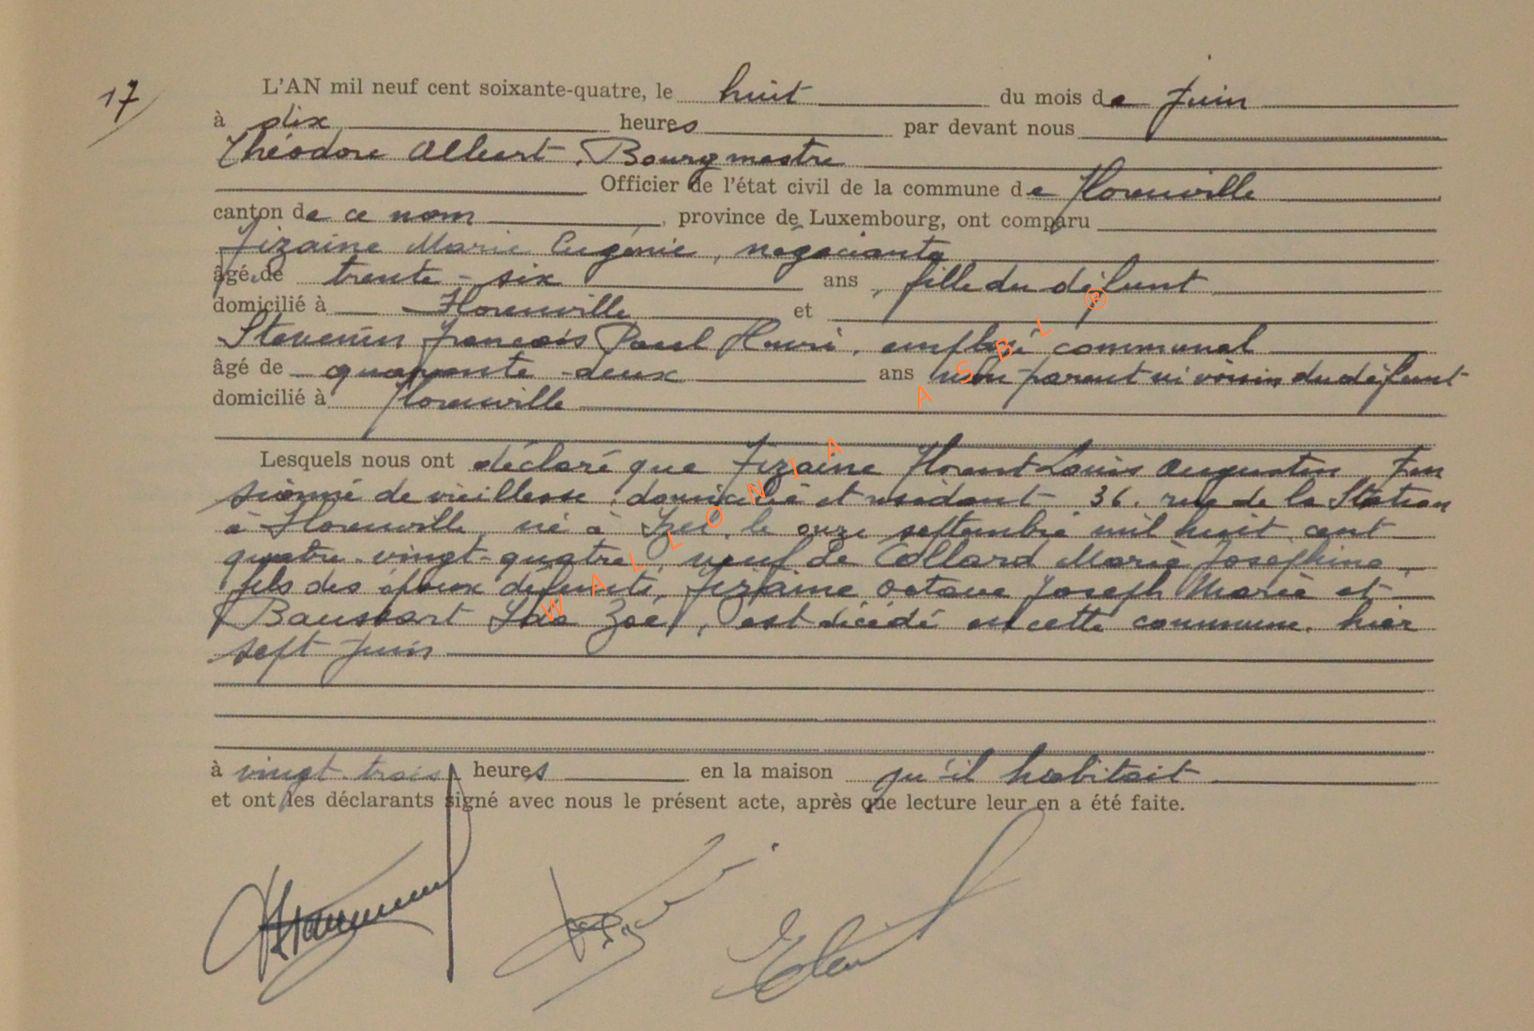 17
L'AN mil neuf cent soixante-quatre, le huit du mois de juin
à dix heures par devant nous
Théodore Albert, Bourgmestre
Officier de l'état civil de la commune de Florenville
canton de ce nom, province de Luxembourg, ont comparu
Fizaine Marie Eugénie, négociante
âgé de trente-six ans, fille du défunt
domicilié à Florenville et
Stevenin François Paul Henri, employé communal
âgé de quarante-deux ans non parent ni voisin du défunt
domicilié à Florenville
Lesquels nous ont déclaré que Fizaine Florent Louis Augustin, Pen
sionné de vieillesse, domicilié et résidant 36, rue de la Station
à Florenville, né à Izel, le onze septembre mil huit cent
quatre-vingt-quatre, veuf de Collard Marie Joséphine,
fils des époux défunts, Fizaine Octave Joseph Marie et
Baussart Zoé, est décédé en cette commune, hier
sept juin
à vingt-trois heures en la maison qu'il habitait
et ont les déclarants signé avec nous le présent acte, après que lecture leur en a été faite.
WALLONIA ASBL ®